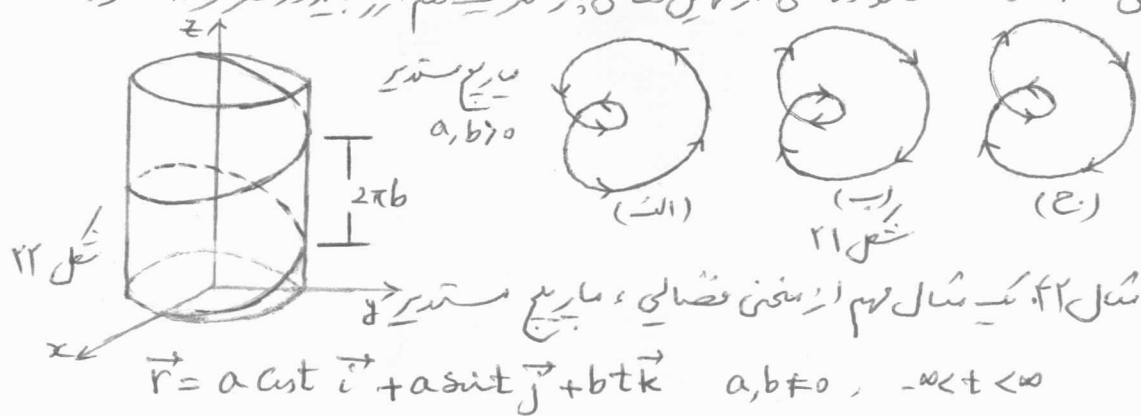 z
مارپیچ مستدیر
a, b>0
2πb
(الف)
(ب)
(ج)
شکل ۲۱
شکل ۲۲
y
x
مثال ۴۲. یک مثال مهم از منحنی فضائی، مارپیچ مستدیر
r⃗ = a cost i⃗ + a sint j⃗ + bt k⃗ a,b≠0, -∞<t<∞